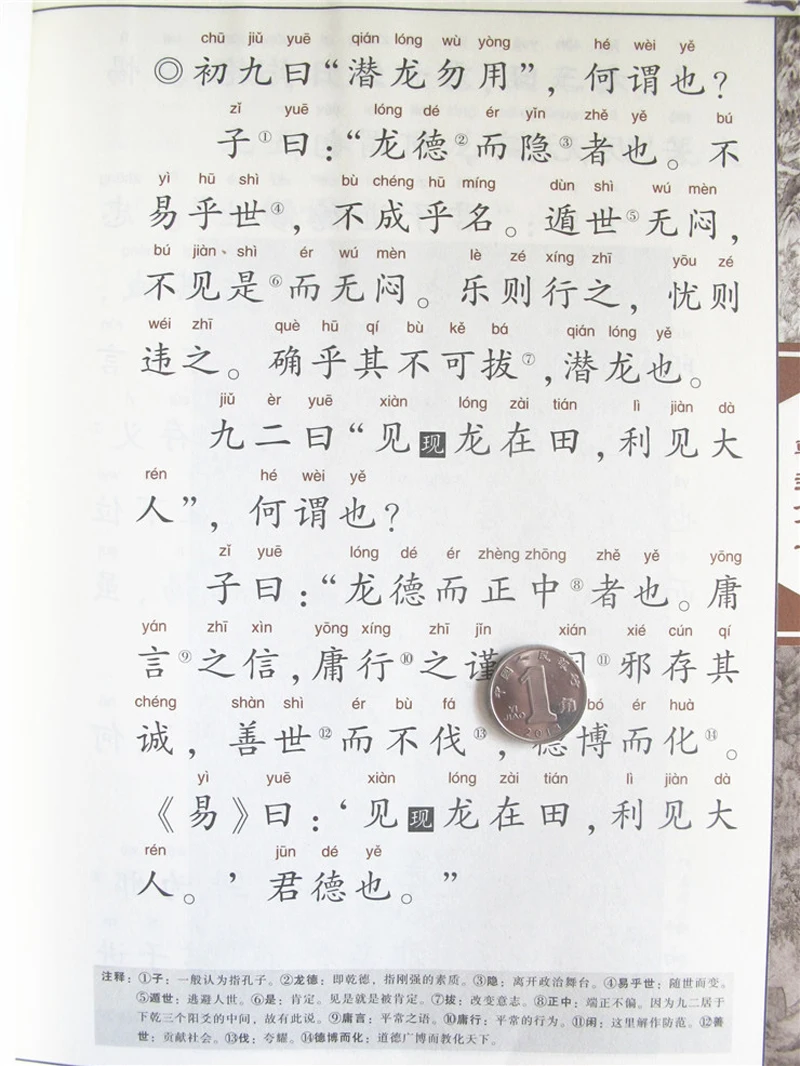 chū jiǔ yuē qián lóng wù yòng hé wèi yě
◎初九曰“潜龙勿用”，何谓也？
zǐ yuē lóng dé ér yǐn zhě yě bú
子①曰：“龙德②而隐③者也。不
yì hū shì bù chéng hū míng dùn shì wú mèn
易乎世④，不成乎名。遁世⑤无闷，
bú jiàn shì ér wú mèn lè zé xíng zhī yōu zé
不见是⑥而无闷。乐则行之，忧则
wéi zhī què hū qí bù kě bá qián lóng yě
违之。确乎其不可拔⑦，潜龙也。
jiǔ èr yuē xiàn lóng zài tián lì jiàn dà
九二曰“见现龙在田，利见大
rén hé wèi yě
人”，何谓也？
zǐ yuē lóng dé ér zhèng zhōng zhě yě yōng
子曰：“龙德而正中⑧者也。庸
yán zhī xìn yōng xíng zhī jǐn xián xié cún qí
言⑨之信，庸行⑩之谨 ⑪邪存其
chéng shàn shì ér bù fá bó ér huà
诚，善世⑫而不伐⑬，德博而化⑭。
yì yuē xiàn lóng zài tián lì jiàn dà
《易》曰：‘见现龙在田，利见大
rén jūn dé yě
人。’君德也。”
注释：①子：一般认为指孔子。②龙德：即乾德，指刚强的素质。③隐：离开政治舞台。④易乎世：随世而变。
⑤遁世：逃避人世。⑥是：肯定。见是就是被肯定。⑦拔：改变意志。⑧正中：端正不偏。因为九二居于
下乾三个阳爻的中间，故有此说。⑨庸言：平常之语。⑩庸行：平常的行为。⑪闲：这里解作防范。⑫善
世：贡献社会。⑬伐：夸耀。⑭德博而化：道德广博而教化天下。
1
角
YI JIAO